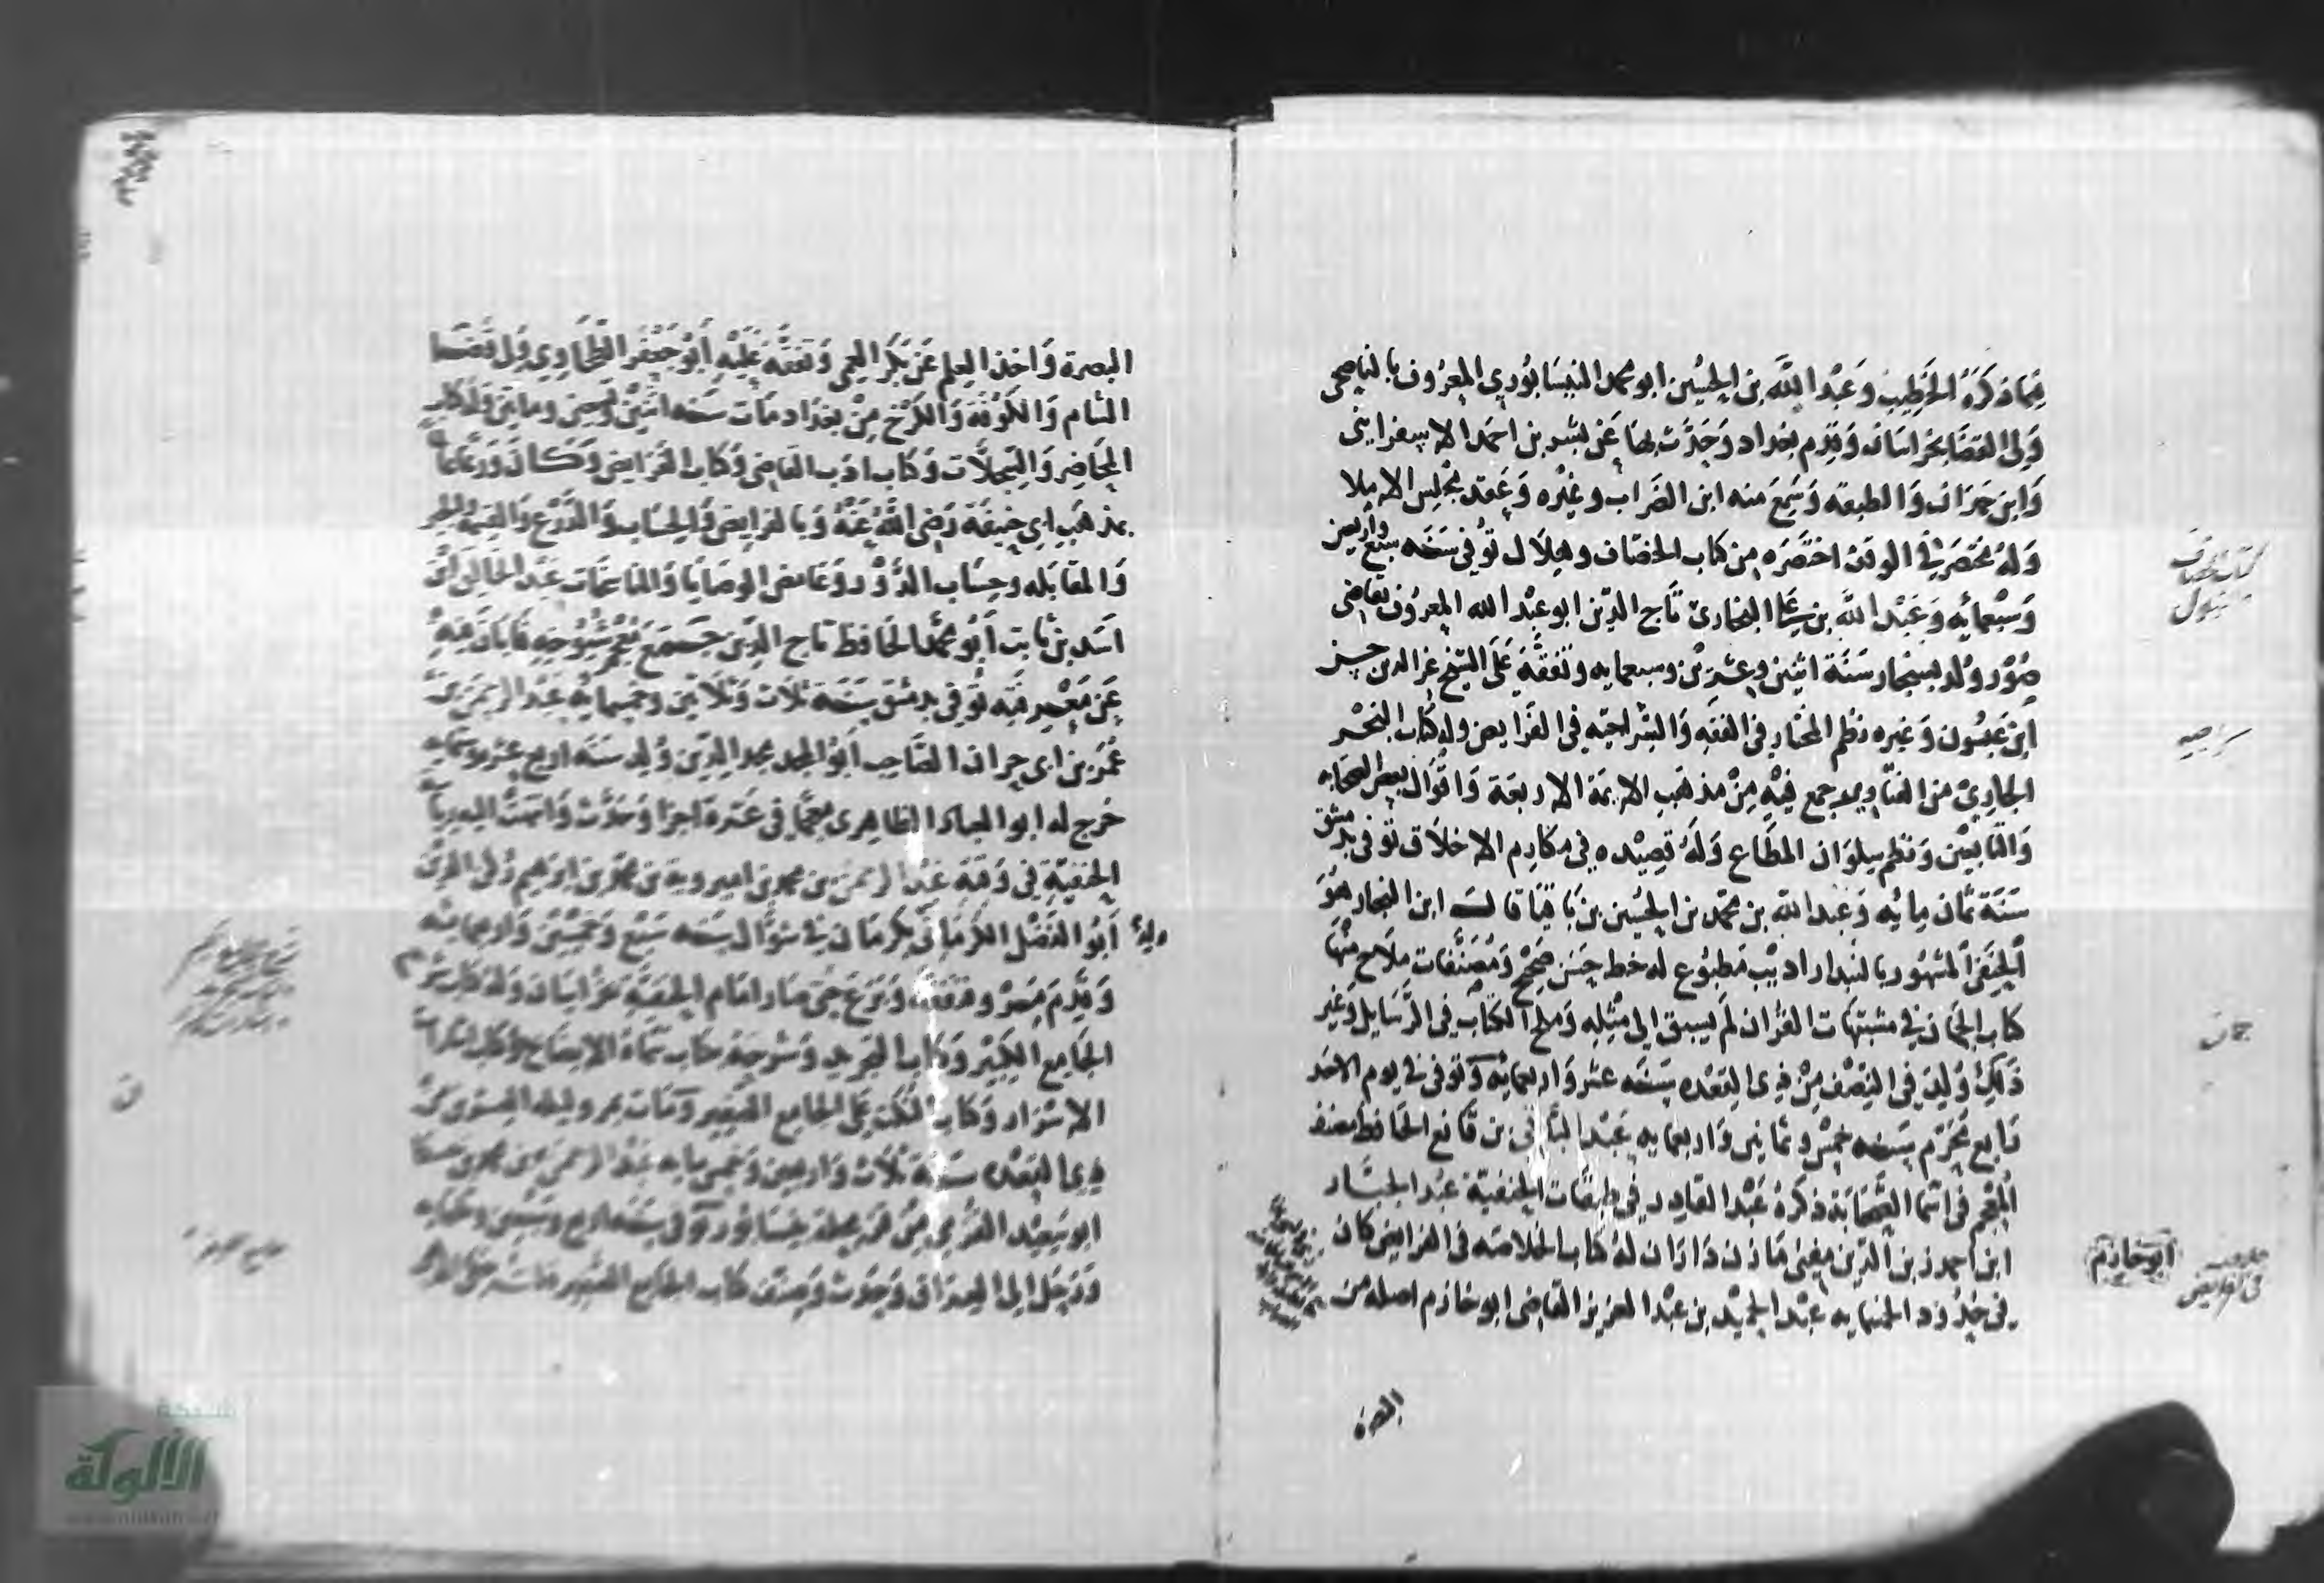 فيما ذكره الخطيب وعبد الله بن الحسين ابو محمد النيسابوري المعروف بالناصحي
ولي القضا بخراسان وقدم بغداد وحدث بها عن بشر بن احمد الاسفرايني
وابن حمدان والطبقه وسمع منه ابن الضراب وغيره وعقد مجلس الاملا
وله مختصر في الوقف اختصره من كتاب الخصاف وهلال توفي سنه سبع واربعين
وسبعمائه وعبد الله بن علي البخاري تاج الدين ابو عبد الله المعروف بقاضي
صور ولد بسنجار سنة اثنين وعشرين وسبعمايه وتفقه على الشيخ عز الدين
ابن عبسون وغيره نظم المختار في الفقه والسراجيه في الفرايض وله كتاب البحر
الحاوي من الفتاوي جمع فيه من مذهب الايمة الاربعة واقوال بعض الصحابه
والتابعين ونظم سلوان المطاع وله قصيده في مكارم الاخلاق توفي بدمشق
سنة ثمان مايه وعبد الله بن محمد بن الحسين بن باقيا قال ابن النجار هو
الحنفي المشهور بالبندار اديب مطبوع له خط حسن صحيح ومصنفات ملاح منها
كتاب الجمان في مشبهات القران لم يسبق الى مثله وملح الكتاب في الرسايل وغير
ذلك ولد في النصف من ذي القعده سنه عشر واربعمايه وتوفي في يوم الاحد
رابع محرم سنه خمس وثمانين واربعمايه عبد الباقي بن قانع الحافظ مصنف
المعجم في اسما الصحابة ذكره عبد القادر في طبقات الحنفية عبد الجبار
ابن احمد زين الدين مفتي مازن داران له كتاب الخلاصه في الفرايض كان
في حدود الخمسمايه عبد الحميد بن عبد العزيز القاضي ابو خازم اصله من
البصرة
كتاب الخصاف
سراجيه
جمان
ابو خازم
في الفرايض
البصرة واخذ العلم عن بكر العمي وتفقه عليه ابو جعفر الطحاوي ولي قضا
الشام والكوفة والكرخ من بغداد مات سنه اثنين وتسعين ومايتين وله كتاب
المحاضر والسجلات وكتاب ادب القاضي وكتاب الفرايض وكان ورعا عالما
بمذهب ابي حنيفة رضي الله عنه وبالفرايض والحساب والذرع والقسمه والجبر
والمقابله وحساب الدور وغامض الوصايا والمناسخات عبد الخالق ابن
اسد بن ثابت ابو محمد الحافظ تاج الدين جمع معجم شيوخه فابان فيه
عن معرفته توفي بدمشق سنة ثلاث وثلاثين وخمسمايه عبد الرحمن بن
عمر بن ابي جراده الصاحب ابو المجد مجد الدين ولد سنه اربع عشره وستمايه
خرج له ابو العباس الظاهري معجما في عشرة اجزا وحدث وانتهت اليه رياسة
الحنفية في وقته عبد الرحمن بن محمد بن اميرويه بن محمد بن ابرهيم ركن الدين
ابو الفضل الكرماني ولد بكرمان في شوال سنه سبع وخمسين واربعمايه
وقدم مرو وتفقه وبرع حتى صار امام الحنفية بخراسان وله كتاب شرح
الجامع الكبير وكتاب التجريد وشرحه بكتاب سماه الايضاح وكتاب اشارات
الاسرار وكتاب النكت على الجامع الصغير ومات بمرو ليله العشرين من
ذي القعده سنة ثلاث واربعين وخمس مايه عبد الرحمن بن محمد بن حسكا
ابو سعيد القزي من قز محلة بنيسابور توفي سنه اربع وسبعين وثلثمايه
ودخل الى العراق وحدث وصنف كتاب الجامع الصغير
شبكة
الألوكة